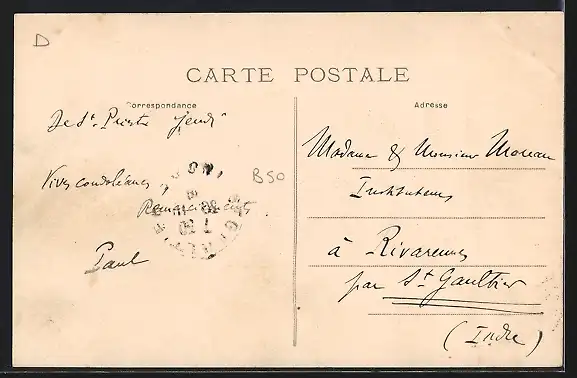 D
CARTE POSTALE
Correspondance
Adresse
Jeudi
Vives condoléances
Remerciements
Paul
B50
Madame & Monsieur Moreau
Instituteurs
à Rivarennes
par St Gaultier
(Indre)